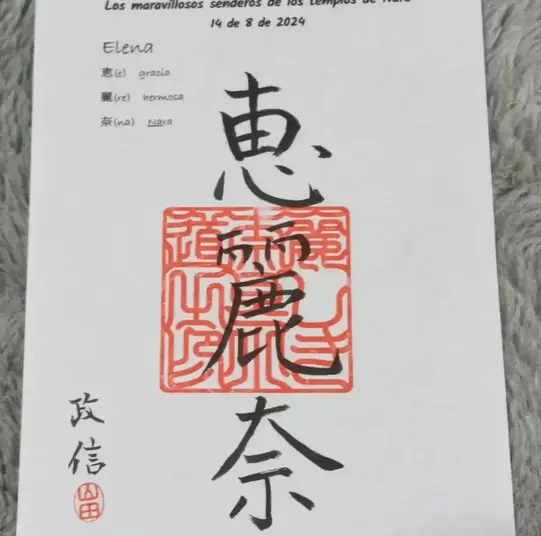 Los maravillosos senderos de los templos de Nara
14 de 8 de 2024
Elena
恵(e) gracia
麗(re) hermosa
奈(na) Nara
恵
麗
奈
政信
山田